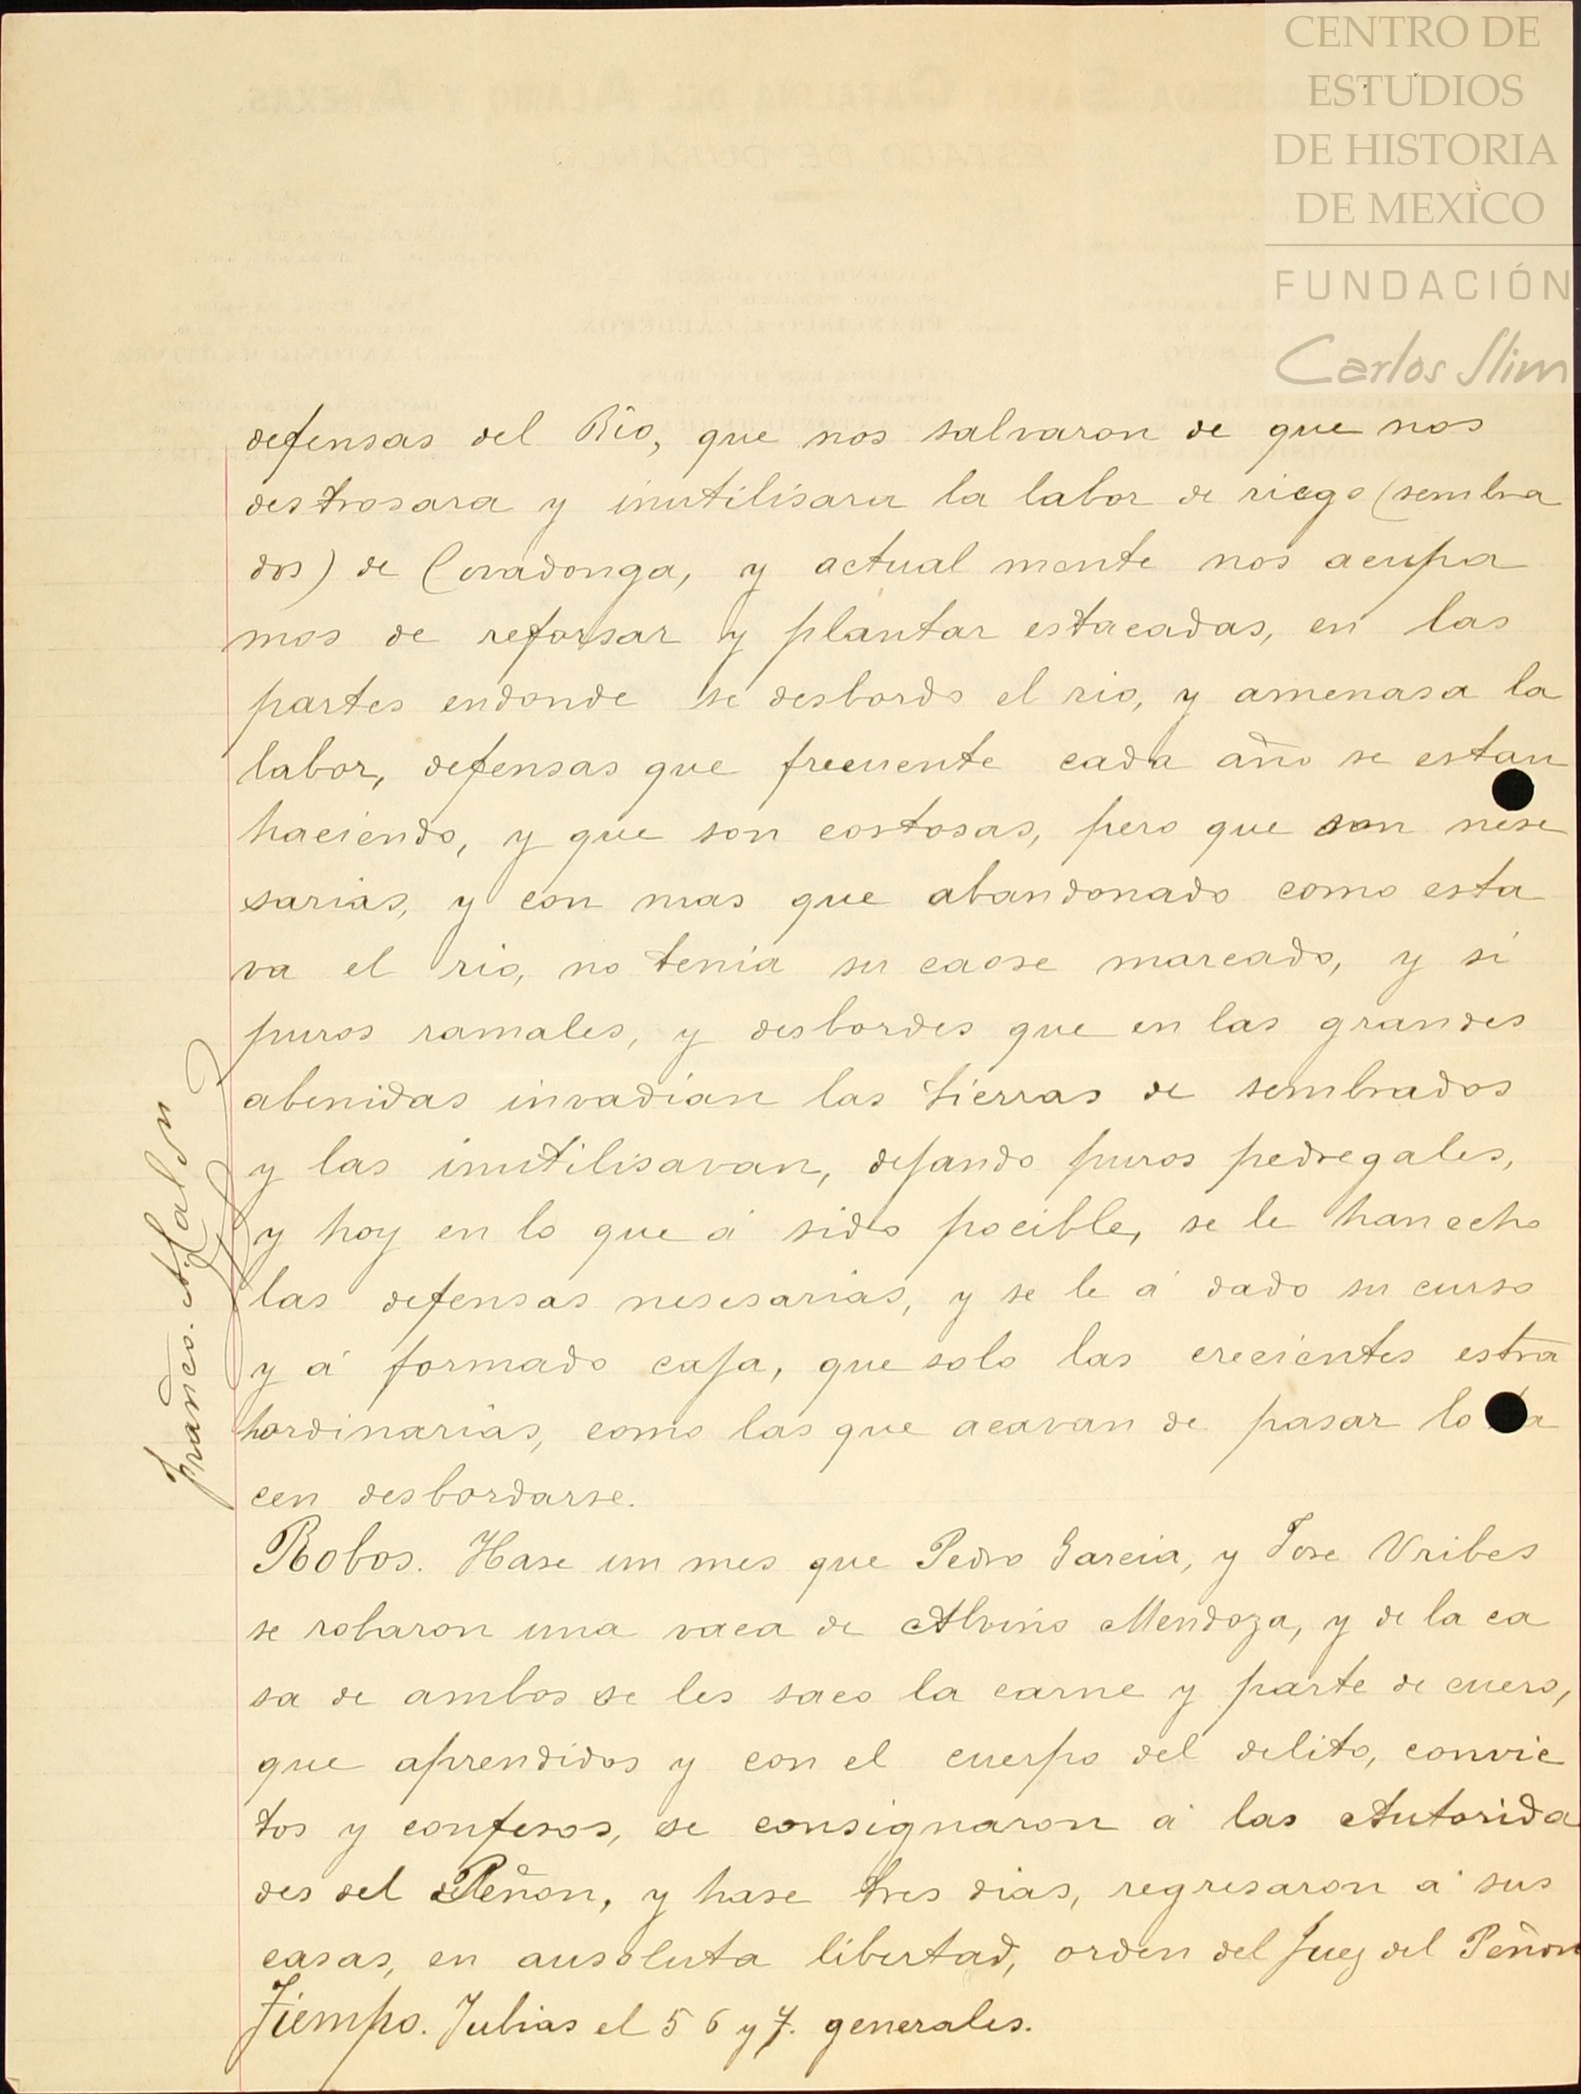 CENTRO DE
ESTUDIOS
DE HISTORIA
DE MEXICO
FUNDACIÓN
Carlos Slim
defensas del Rio, que nos salvaron de que nos
destrosara y inutilisara la labor de riego (sembra
dos) de Covadonga, y actual mente nos acupa
mos de reforsar y plantar estacadas, en las
partes endonde se desbordo el rio, y amenasa la
labor, defensas que frecuente cada año se estan
haciendo, y que son costosas, pero que son nese
sarias, y con mas que abandonado como esta
va el rio, no tenia su caose marcado, y si
puros ramales, y desbordes que en las grandes
abenidas invadian las tierras de sembrados
y las inutilisavan, dejando puros pedregales,
y hoy en lo que á sido pocible, se le han echo
las defensas nesesarias, y se le á dado su curso
y á formado caja, que solo las crecientes estra
hordinarias, como las que acavan de pasar lo
cen desbordarse.
Robos. Hase un mes que Pedro Garcia, y Jose Uribes
se robaron una vaca de Alvino Mendoza, y de la ca
sa de ambos se les saco la carne y parte de cuero,
que aprendidos y con el cuerpo del delito, convic
tos y confesos, se consignaron á las Autorida
des del Peñon, y hase tres dias, regresaron á sus
casas, en ausoluta libertad, orden del Juez del Peñon
Tiempo. Lubias el 5 6 y 7. generales.
Franco. A.